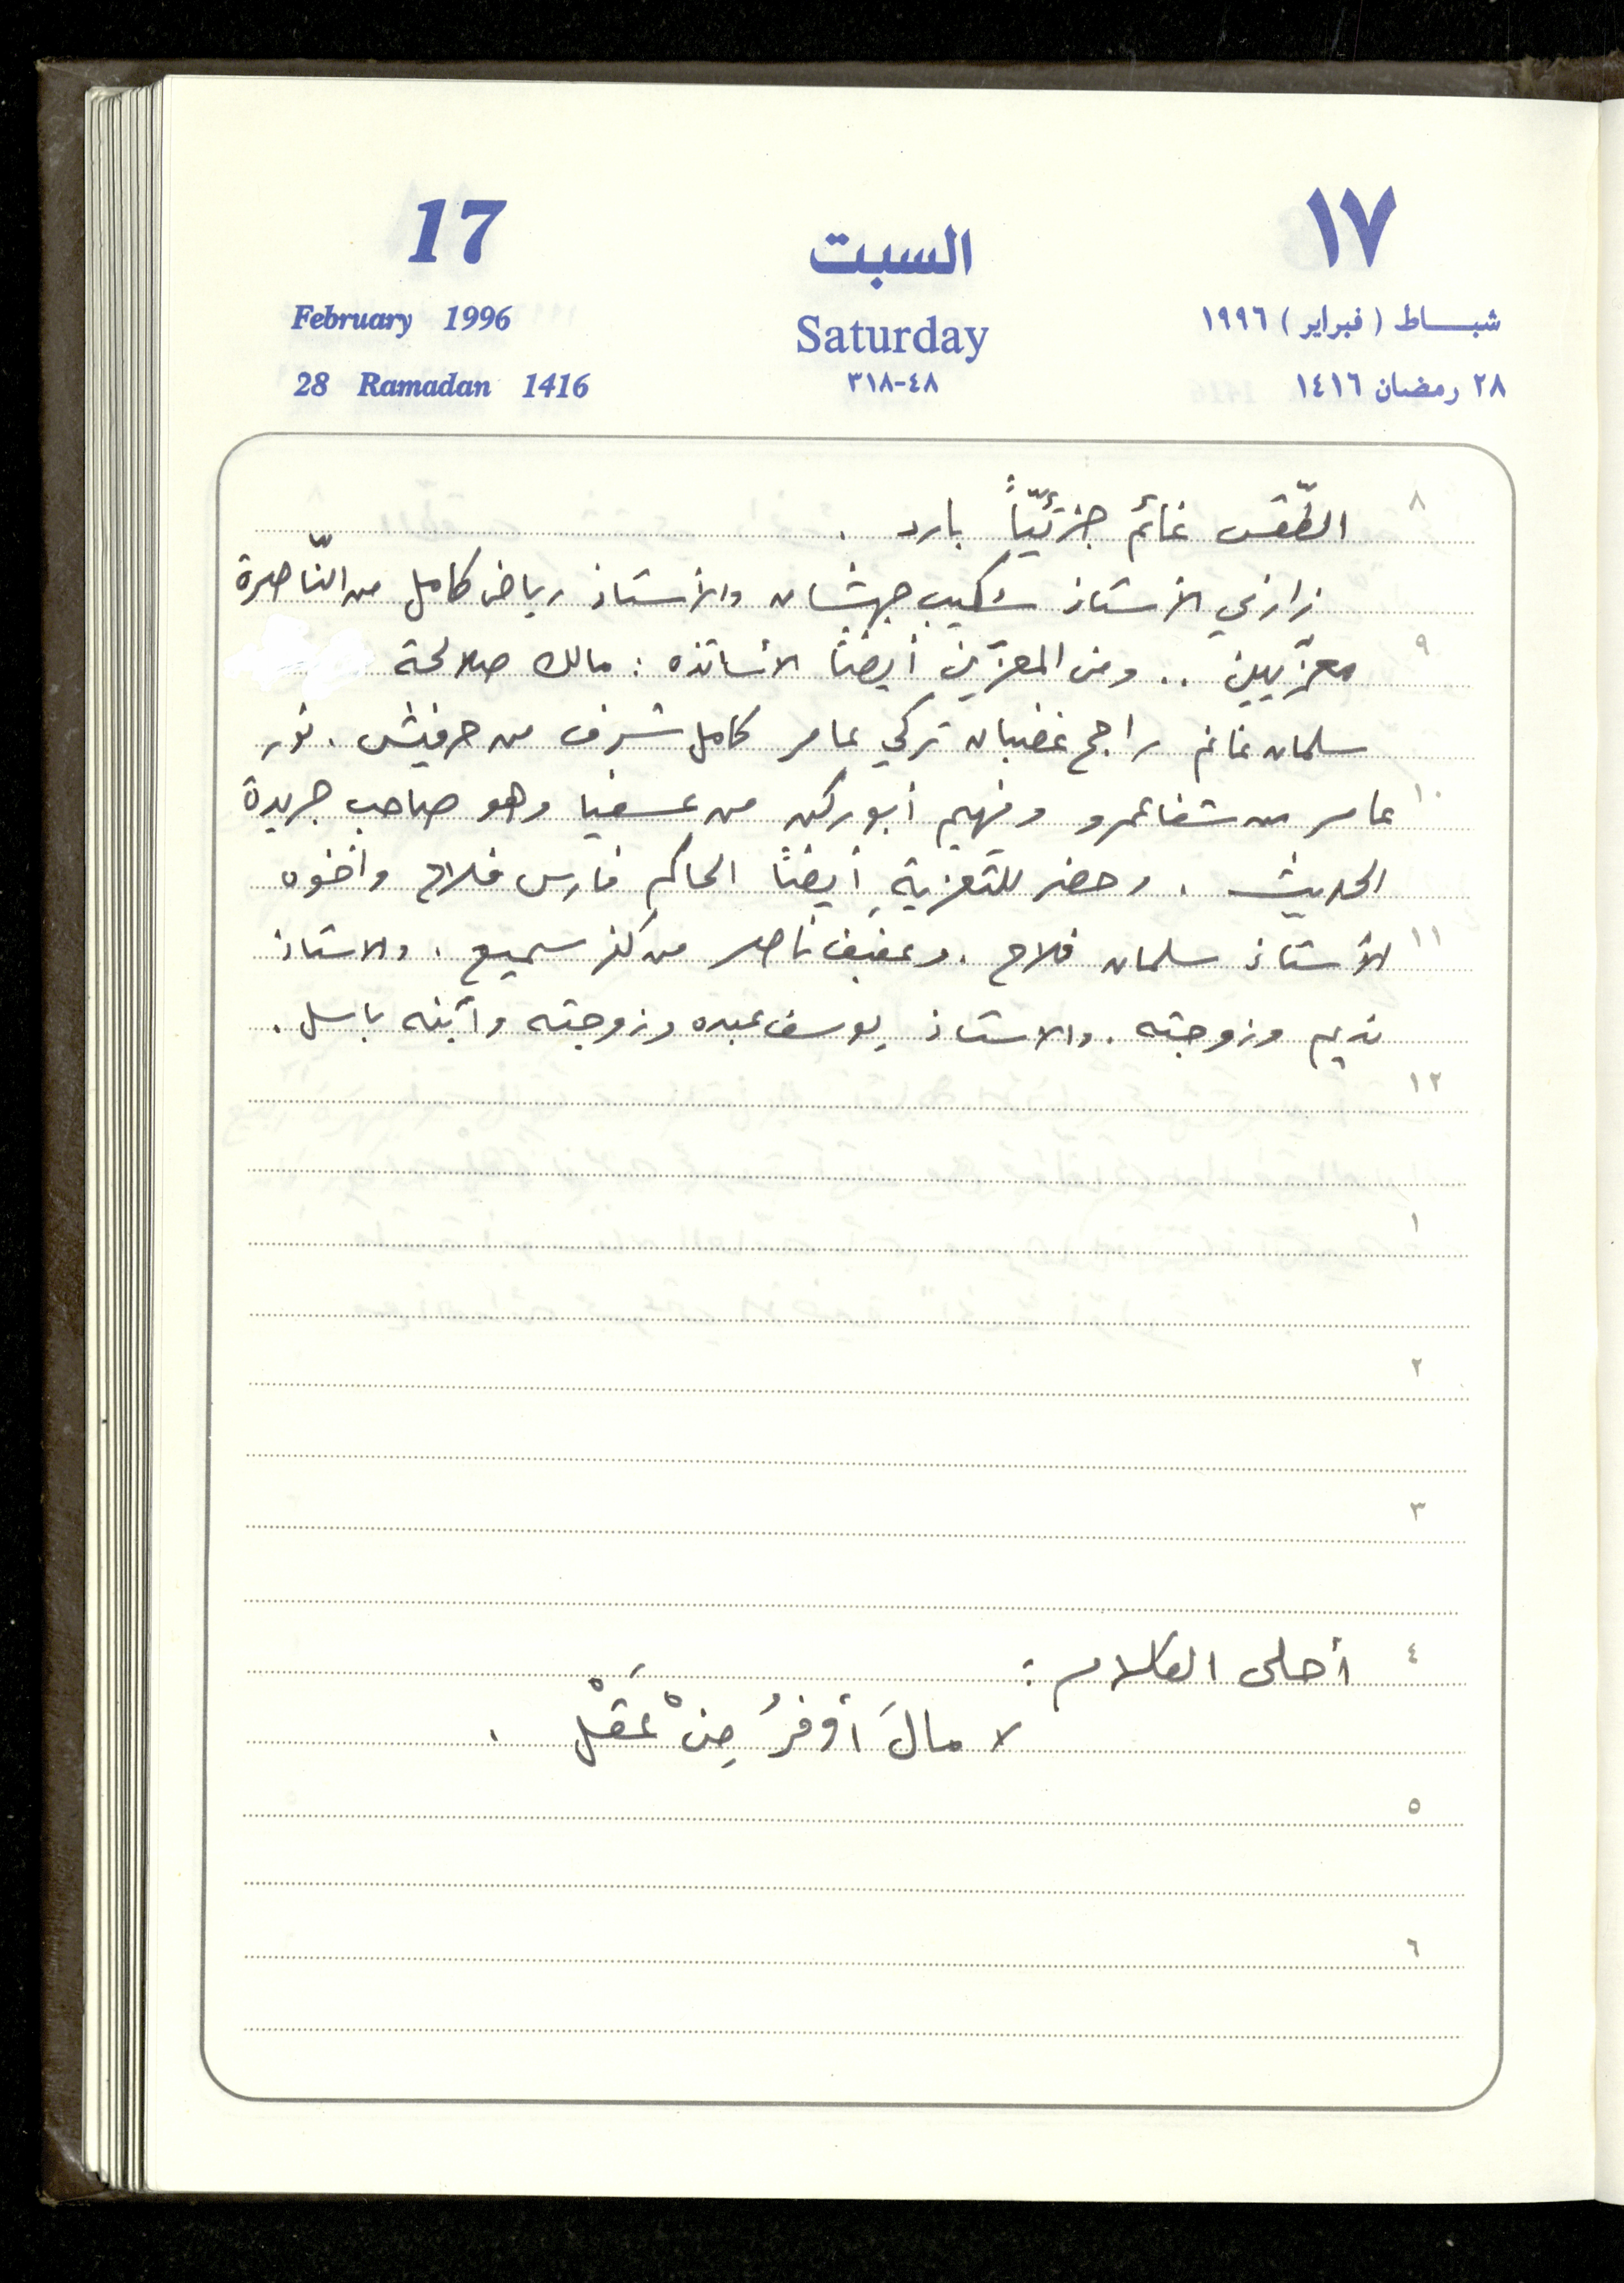 17
السبت
١٧
February 1996
Saturday
شباط (فبراير) ١٩٩٦
28 Ramadan 1416
٣١٨-٤٨
٢٨ رمضان ١٤١٦
٨
الطّقس غائم جزئيّاً بارد .
زارني الأستاذ شكيب جهشان والأستاذ رياض كامل من النّاصرة
٩
معزّيين .. ومن المعزّين أيضاً الأساتذه : مالك صلالحة
سلمان غانم راجح غضبان تركي عامر كامل شرف من حرفيش . نور
١٠
عامر من شفاعمرو وفهيم أبو ركن من عسفيا وهو صاحب جريدة
الحديث . وحضر للتعزيةِ أيضاً الحاكم فارس فلاح وأخوه
١١
الأستاذ سلمان فلاح . وعفيف ناصر من كفر سميع . والاستاذ
نديم وزوجته . والاستاذ يوسف عبده وزوجته وابنه باسل .
١٢
١
٢
٣
٤
أحلى الكلام :
لا مالَ أوفرُ مِنْ عَقْلْ .
٥
٦